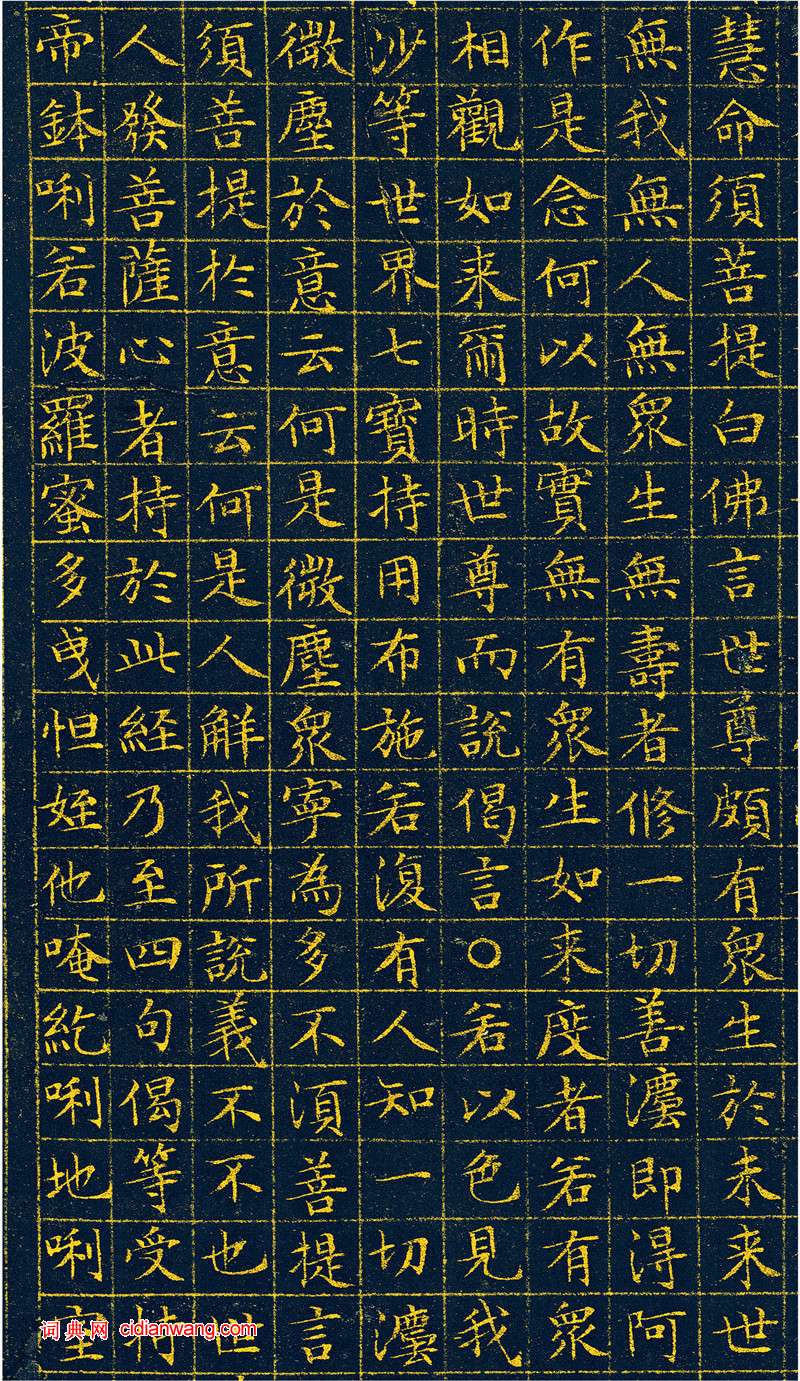 慧命須菩提白佛言世尊頗有眾生於未来世
無我無人無眾生無壽者修一切善灋即得阿
作是念何以故實無有眾生如来度者若有眾
相觀如来爾時世尊而說偈言〇若以色見我
沙等世界七寶持用布施若復有人知一切灋
微塵於意云何是微塵眾寧為多不須菩提言
須菩提於意云何是人解我所說義不不也世
人發菩薩心者持於此経乃至四句偈等受持
帝鉢唎若波羅蜜多曵怛姪他唵紇唎地唎室
词典网 cidianwang.com